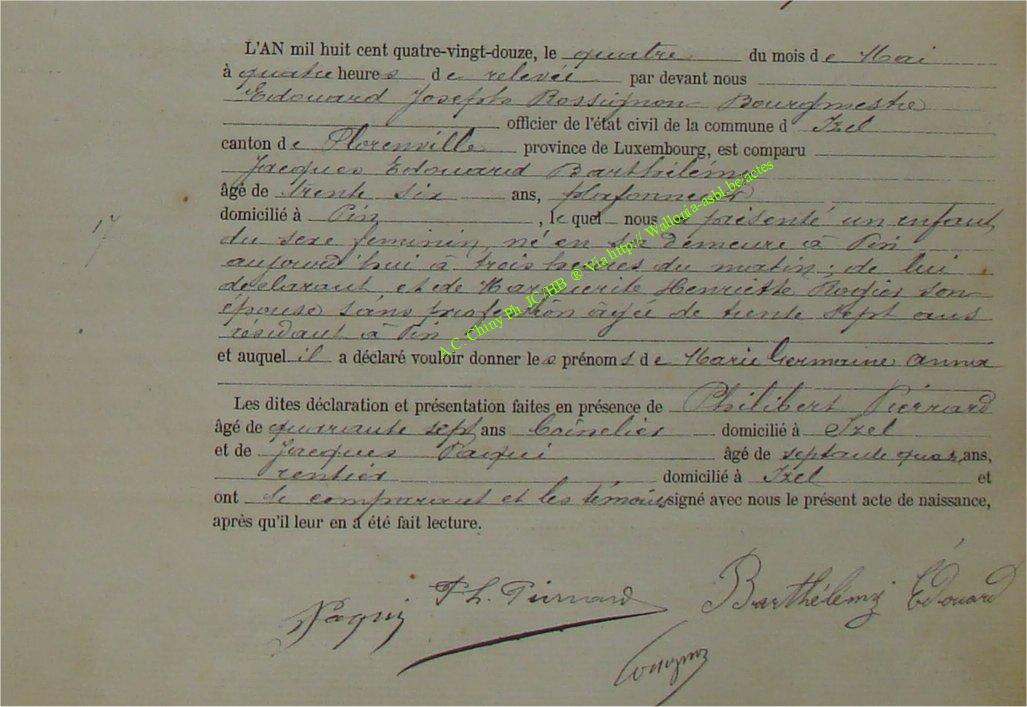 L'AN mil huit cent quatre-vingt-douze, le quatre du mois de Mai
à quatre heures de relevée par devant nous
Edouard Joseph Rossignon Bourgmestre
officier de l'état civil de la commune d' Izel
canton de Florenville province de Luxembourg, est comparu
Jacques Edouard Barthélemy
âgé de trente six ans, plafonneur
domicilié à Pin, lequel nous a présenté un enfant
17
du sexe feminin, né en sa demeure à Pin
aujourd'hui à trois heures du matin; de lui
déclarant et de Marguerite Henriette Rogier son
épouse sans profession âgée de trente sept ans
résidant à Pin
et auquel il a déclaré vouloir donner les prénoms de Marie Germaine Anna
Les dites déclaration et présentation faites en présence de Philibert Pierrard
âgé de quarante sept ans domicilié à Izel
et de Jacques Paqui âgé de septante quat ans,
rentier domicilié à Izel et
ont le comparant et les témoins signé avec nous le présent acte de naissance,
après qu'il leur en a été fait lecture.
Paqui Ph. Pierrard Barthélemy Edouard
A.C. Chiny Ph. JC/HB ® Via http:// Wallonia-asbl.be/actes